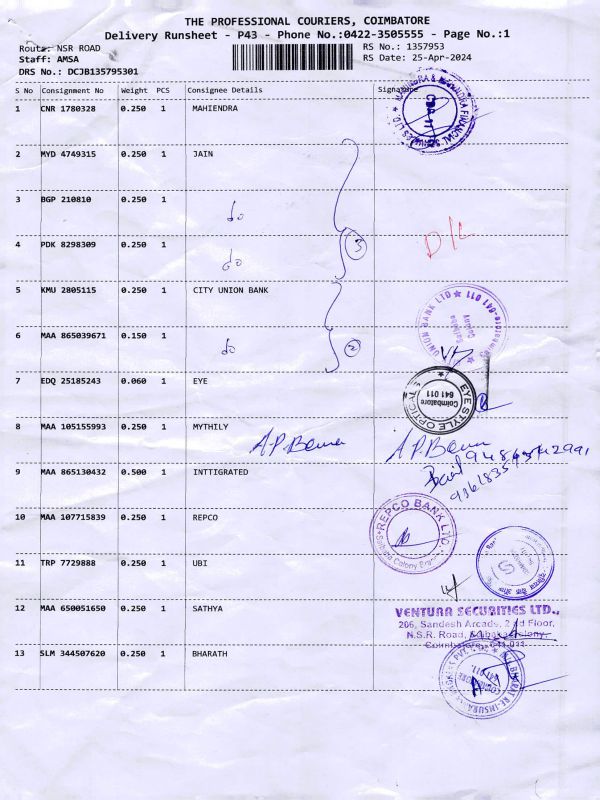 THE PROFESSIONAL COURIERS, COIMBATORE
Delivery Runsheet - P43 - Phone No.:0422-3505555 - Page No.:1
Route: NSR ROAD
RS No.: 1357953
Staff: AMSA
RS Date: 25-Apr-2024
DRS No.: DCJB135795301
S No Consignment No Weight PCS Consignee Details Signature
1 CNR 1780328 0.250 1 MAHIENDRA
2 MYD 4749315 0.250 1 JAIN
3 BGP 210810 0.250 1 do
4 PDK 8298309 0.250 1 do 3
D/L
5 KMU 2805115 0.250 1 CITY UNION BANK
UNION BANK LTD ★ Coimbatore-641 011
Saibaba
Colony
6 MAA 865039671 0.150 1 do 2
7 EDQ 25185243 0.060 1 EYE
EYE STYLE OPTICALS
Coimbatore
641 011
8 MAA 105155993 0.250 1 MYTHILY
9 MAA 865130432 0.500 1 INTTIGRATED
10 MAA 107715839 0.250 1 REPCO
REPCO BANK LTD
Colony
11 TRP 7729888 0.250 1 UBI
12 MAA 650051650 0.250 1 SATHYA
VENTURA SECURITIES LTD.,
206, Sandesh Arcade, 2nd Floor,
N.S.R. Road, Saibaba Colony,
Coimbatore - 641 011
13 SLM 344507620 0.250 1 BHARATH
COIMBATORE
641 011.